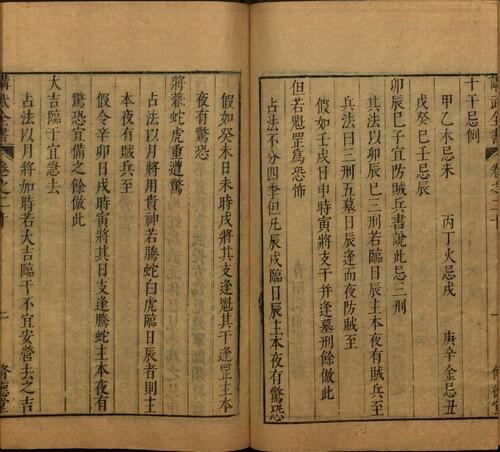 十干忌例
甲乙木忌未 丙丁火忌戌 庚辛金忌丑
戊癸巳土忌辰
卯辰巳子宜防賊兵書說此忌三刑
其法以日卯辰巳三刑若臨日辰主本夜有賊兵至
兵法曰三刑五墓日辰逢而夜防賊至
假如壬戌日申時寅將支干并逢墓刑餘倣此
但若魁罡為恐怖
占法不分四季但凡辰戌臨日辰主本夜有驚恐
假如癸未日未時戌將其支逢魁其干逢罡主本
夜有驚恐
將兼蛇虎重遭驚
占法以月將用貴神若騰蛇白虎臨日辰者則主
本夜有賊兵至
假令辛卯日戌時寅將其日支逢騰蛇主本夜有
驚恐宜備之餘倣此
大吉臨干宜急去
占法以月將加時若大吉臨干不宜安營去之吉
講武全書 卷之二十 二